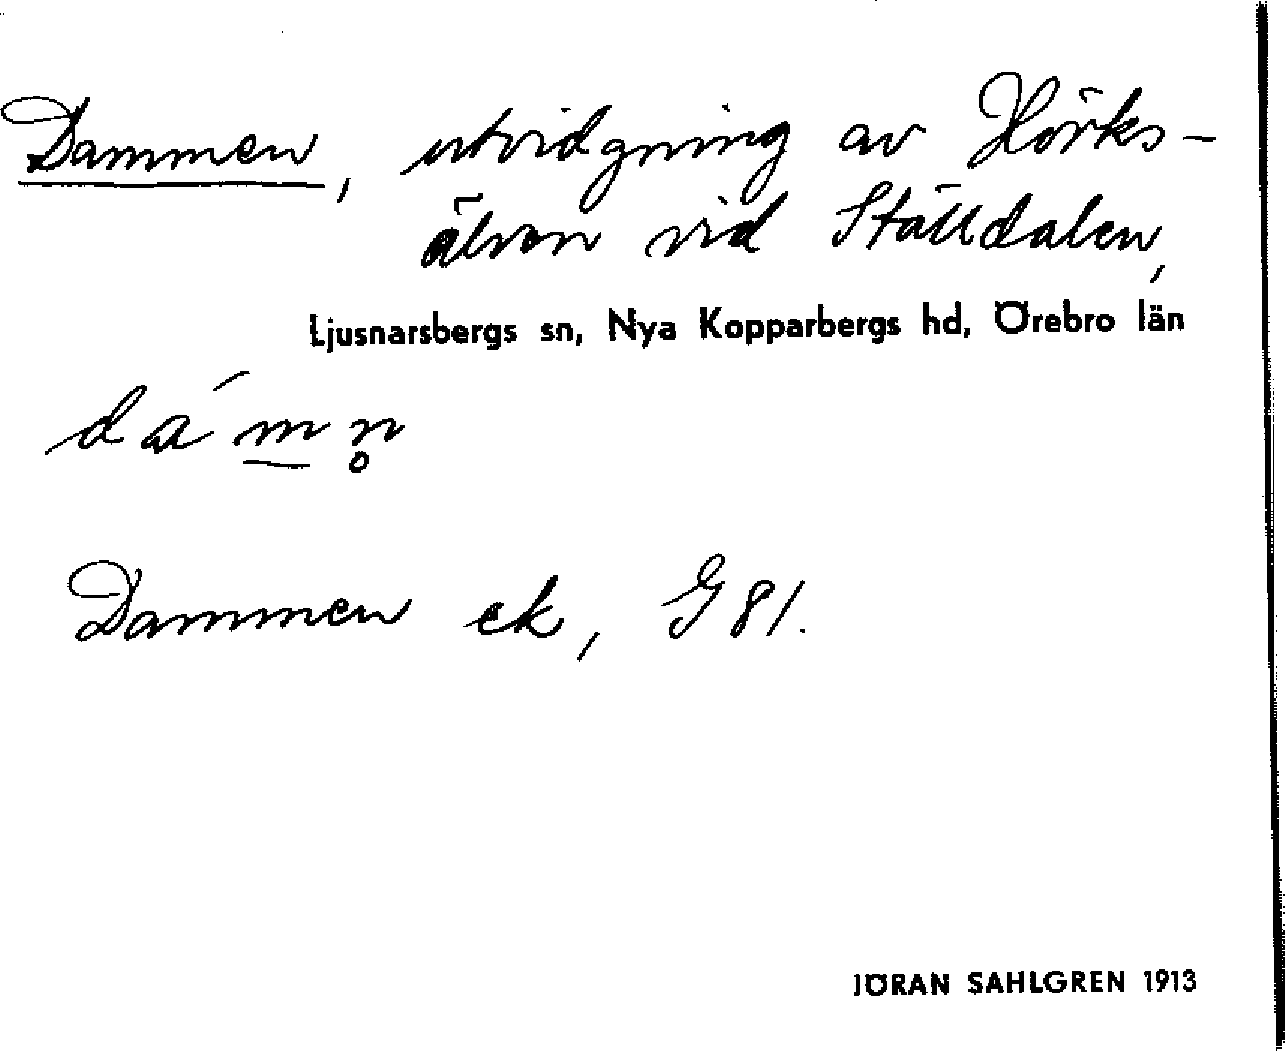 Dammen, utvidgning av Hörks-
älven vid Ställdalen,
Ljusnarsbergs sn, Nya Kopparbergs hd, Örebro län
dá m̲n̥
Dammen ek, G 81.
JÖRAN SAHLGREN 1913